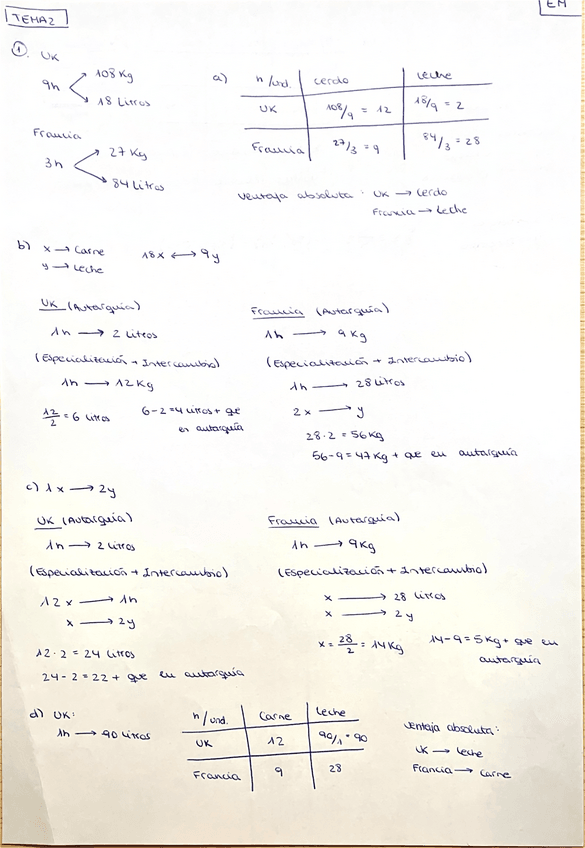 TEMA2
EM
1. UK
9h
108 Kg
18 Litros
Francia
3h
27 Kg
84 Litros
a)
n/und. Cerdo Leche
UK 108/9 = 12 18/9 = 2
Francia 27/3 = 9 84/3 = 28
Ventaja absoluta: UK → Cerdo
Francia → Leche
b) x → Carne 18x ↔ 9y
y → Leche
UK (Autarquía)
1h → 2 Litros
(Especialización + Intercambio)
1h → 12 Kg
12/2 = 6 Litros 6-2=4 Litros + que
en autarquía
Francia (Autarquía)
1h → 9 Kg
(Especialización + Intercambio)
1h → 28 Litros
2x → y
28·2 = 56 Kg
56-9 = 47 Kg + que en autarquía
c) 1x → 2y
UK (Autarquía)
1h → 2 Litros
(Especialización + Intercambio)
12x → 1h
x → 2y
12·2 = 24 Litros
24-2 = 22 + que en autarquía
Francia (Autarquía)
1h → 9 Kg
(Especialización + Intercambio)
x → 28 Litros
x → 2y
x = 28/2 = 14 Kg 14-9=5 Kg + que en
autarquía
d) UK:
1h → 90 Litros
n/und. Carne Leche
UK 12 90/1 = 90
Francia 9 28
Ventaja absoluta:
UK → Leche
Francia → Carne